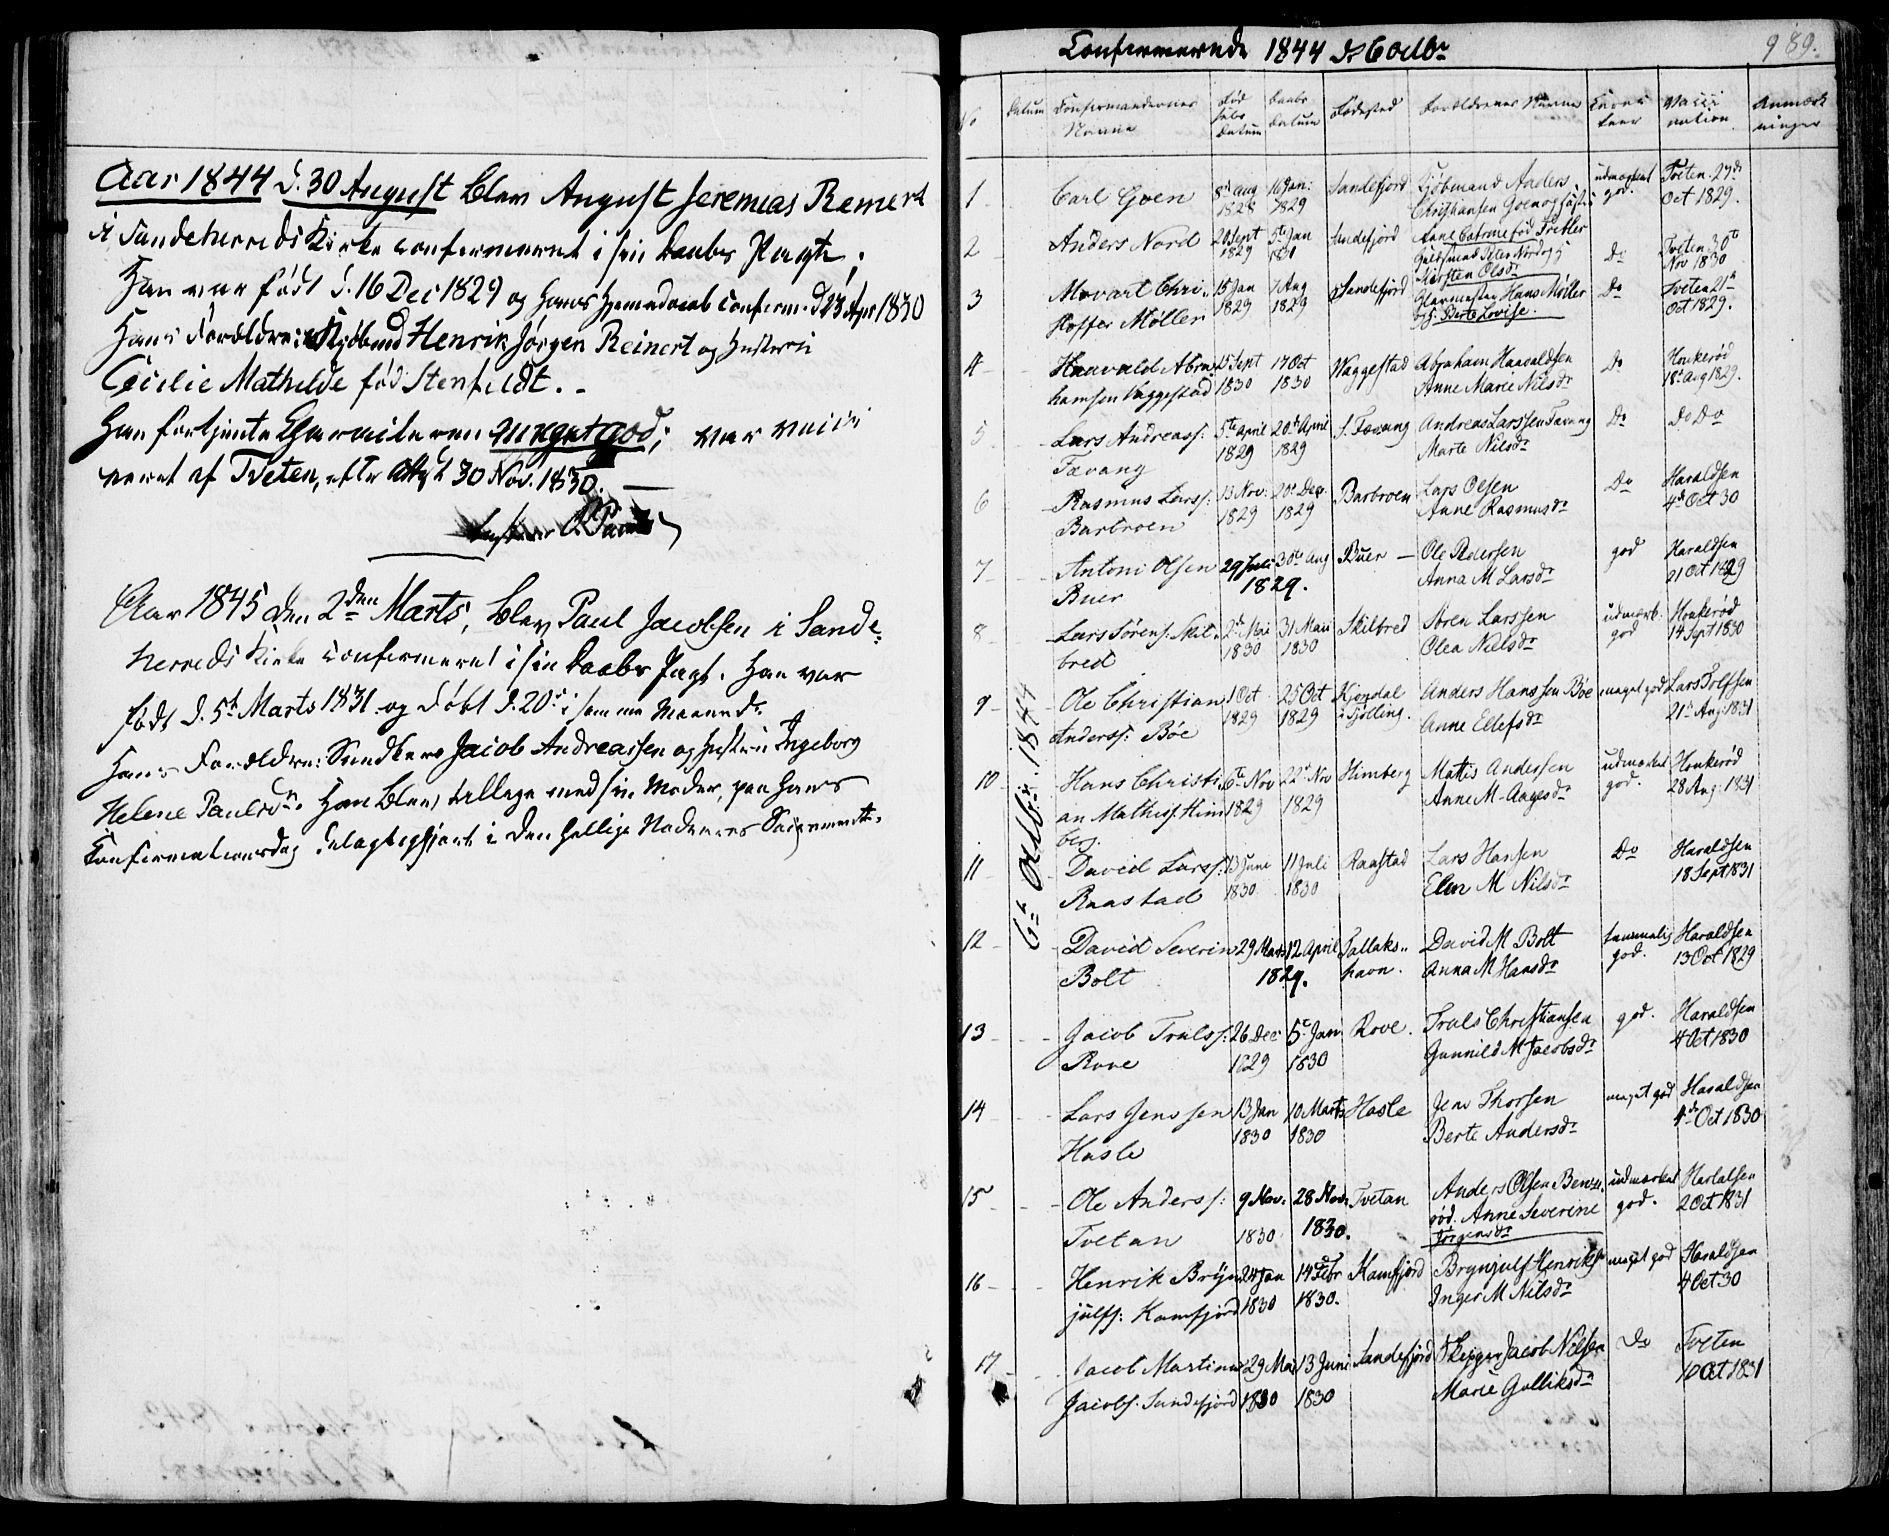 Aar 1844 d. 30 August blev August Jeremias Reinert
i Sandeherreds Kirke confirmeret i sin Daabs Pagt;
Han var født d. 16 Dec 1829 og hans hjemmedaab conferm. d 23 Apr 1830
Hans Forældre: Kjøbmd Henrik Jørgen Reinert og Hustru
Cecilie Mathilde fød Stenfeldt. -
Han fortjente Characteren meget god; var vacci
neret af Tveten, efter Att. d 30 Nov. 1830. —
Aar 1845 den 2den Marts, blev Paul Jacobsen i Sande-
herreds Kirke confirmeret i sin Daabs Pagt. Han var
født d. 5te Marts 1831 og døbt d. 20de i samme Maaned.
Hans Forældre: Jacob Andreassen og Hustru Ingeborg
Helene Paulsdr. Han blev tillige med sin Moder, paa hans
Confirmationsdag delagtiggjort i den hellige Nadveres Sacramente.
Confirmerede 1844 d. 6 Octbr
989.
No Datum Confirmandernes Navne Fødselsdatum Daabsdatum Fødested Forældrenes Navne Caracteer Vaccination Anmærkninger
6te Octbr. 1844
1 Carl Goen 8de Aug 1828 16 Jan: 1829 Sandefjord Kjøbmand Anders
Christiansen Goen og udmærket god. Tveten 27de Oct 1829.
Anne Catrine fød Tretler
2 Anders Nord 20 Sept 1829 5te Jan 1830 Sandefjord Guldsmed Peter Nord og
Karsten Olsdr Do Tveten 30te Nov 1830
3 Movart Chri-
stoffer Møller 15 Jan 1829 7 Aug 1829 Sandefjord Glarmester Hans Møller
og Berte Lovise. Do Tveten 21de Oct 1829.
4 Haavald Abra-
hamsen Vaggestad 15 Sept 1830 17 Oct 1830 Vaggestad Abraham Haavaldsen
Anne Marie Nilsdr Do Honkerød 18de Aug 1829.
5 Lars Andreass:
Favang 5te April 1829 20de April 1829 S. Favang Andreas Larssen Favang
Marte Nilsdr Do Do Do
6 Rasmus Larss:
Barbroen 13 Nov. 1829 20de Dec. 1829 Barbroen Lars Olsen
Anne Rasmusdr Do Haraldsen 4de Oct 30
7 Antoni Olsen
Buer 29 Juli 30te Aug 1829. Buer — Ole Pedersen
Anna M Larsdr god Haraldsen 21 Oct 1829
8 Lars Sørens: Skil-
bred 2de Mai 1830 31 Mai 1830 Skilbred Søren Larssen
Olea Nilsdr udmærk. god Honkerød 14 Sept 1830
9 Ole Christian
Anderss: Bøe 1 Oct 1829 25 Oct 1829 i Tjølling. Anders Hanssen Bøe
Anne Ellefsdr meget god Lars Tolfsen 21de Aug: 1831
10 Hans Christi-
an Mathiss: Him-
berg. 6te Nov 1829 22de Nov 1829 Himberg Mattis Andersen
Anne M. Aagesdr udmærket god. Honkerød 28 Aug: 1831
11 David Larss:
Raastad 13 June 1830 11 Juli 1830 Raastad Lars Hansen
Elen M Nilsdr Do Haraldsen 18 Sept 1831
12 David Severin
Bolt 29 Marts 12 April 1829. Tallaks-
havn. David M Bolt
Anna M Hansdr temmelig god. Haraldsen 13 Oct 1829
13 Jacob Trulss:
Rove 26 Dec 1829 5te Jan 1830 Rove. Truls Christiansen
Gunnild M Jacobsdr god. Haraldsen 4 Oct 1830
14 Lars Jenssen
Hasle 13 Jan 1830 10 Marts 1830 Hasle Jens Thorsen
Berte Andersdr meget god Haraldsen 4de Oct 1830
15 Ole Anderss:
Tvetan 9 Nov. 1830 28 Nov. 1830. Tvetan Anders Olsen
Anne Severine
Jørgensdr udmærket god. Harlalsen 2 Oct 1831
16 Henrik Brÿn-
julfs: Kamfjord 24 Jan 1830 14de Febr 1830. Kamfjord Brynjulf Henriks:
Inger M Nilsdr meget god Haraldsen 4 Oct 30
17 Jacob Martin
Jacobs: Sandefjord 29 Mai 1830 13 Juni 1830 Sandefjord Skipper Jacob Nilsen
Marie Gulliksdr Do Tveten 10 Oct 1831